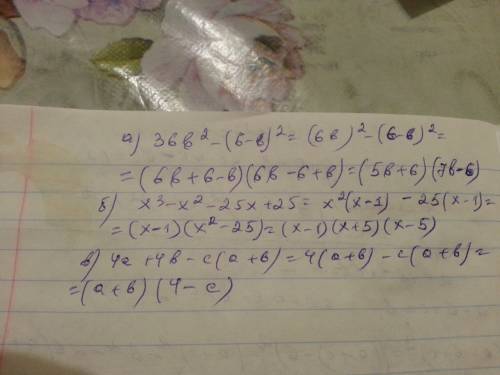 а) 36в² – (6-в)² = (6в)² – (6-в)² =
= (6в+6-в)(6в-6+в) = (5в+6)(7в-6)
б) x³-x²-25x+25 = x²(x-1) - 25(x-1) =
= (x-1)(x²-25) = (x-1)(x+5)(x-5)
в) 4a+4в - c(a+в) = 4(a+в) - c(a+в) =
= (a+в)(4-c)